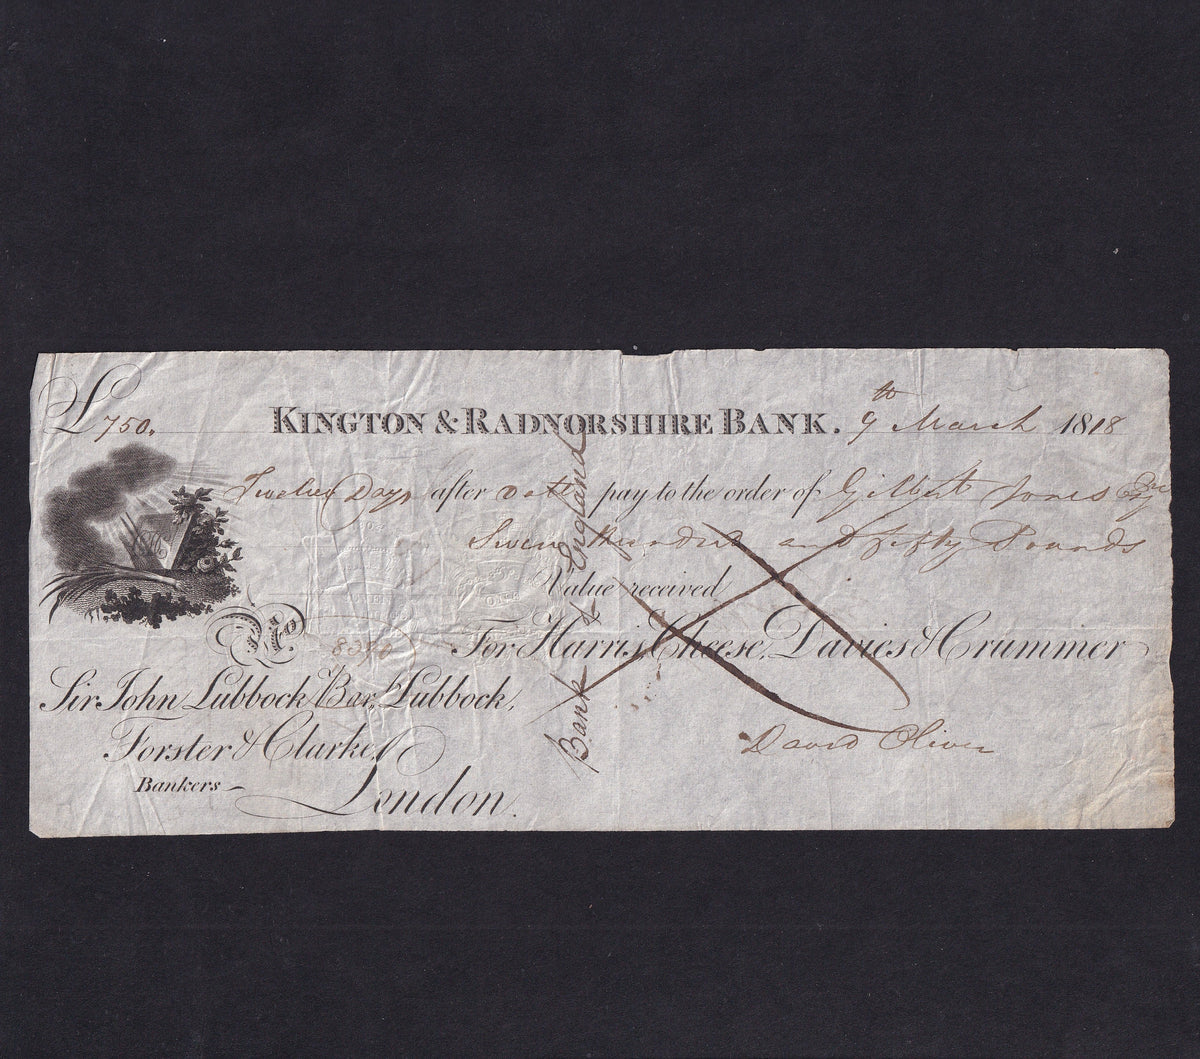 £750.
KINGTON & RADNORSHIRE BANK. 9th March 1818
Twelve Days after date pay to the order of Gilbert Jones Esqre
Seven Hundred and fifty Pounds
Value received
No
For Harris, Cheese, Davies & Crummer
Sir John Lubbock Bart, Lubbock,
Forster & Clarke,
Bankers
London.
David Oliver
Bank of England